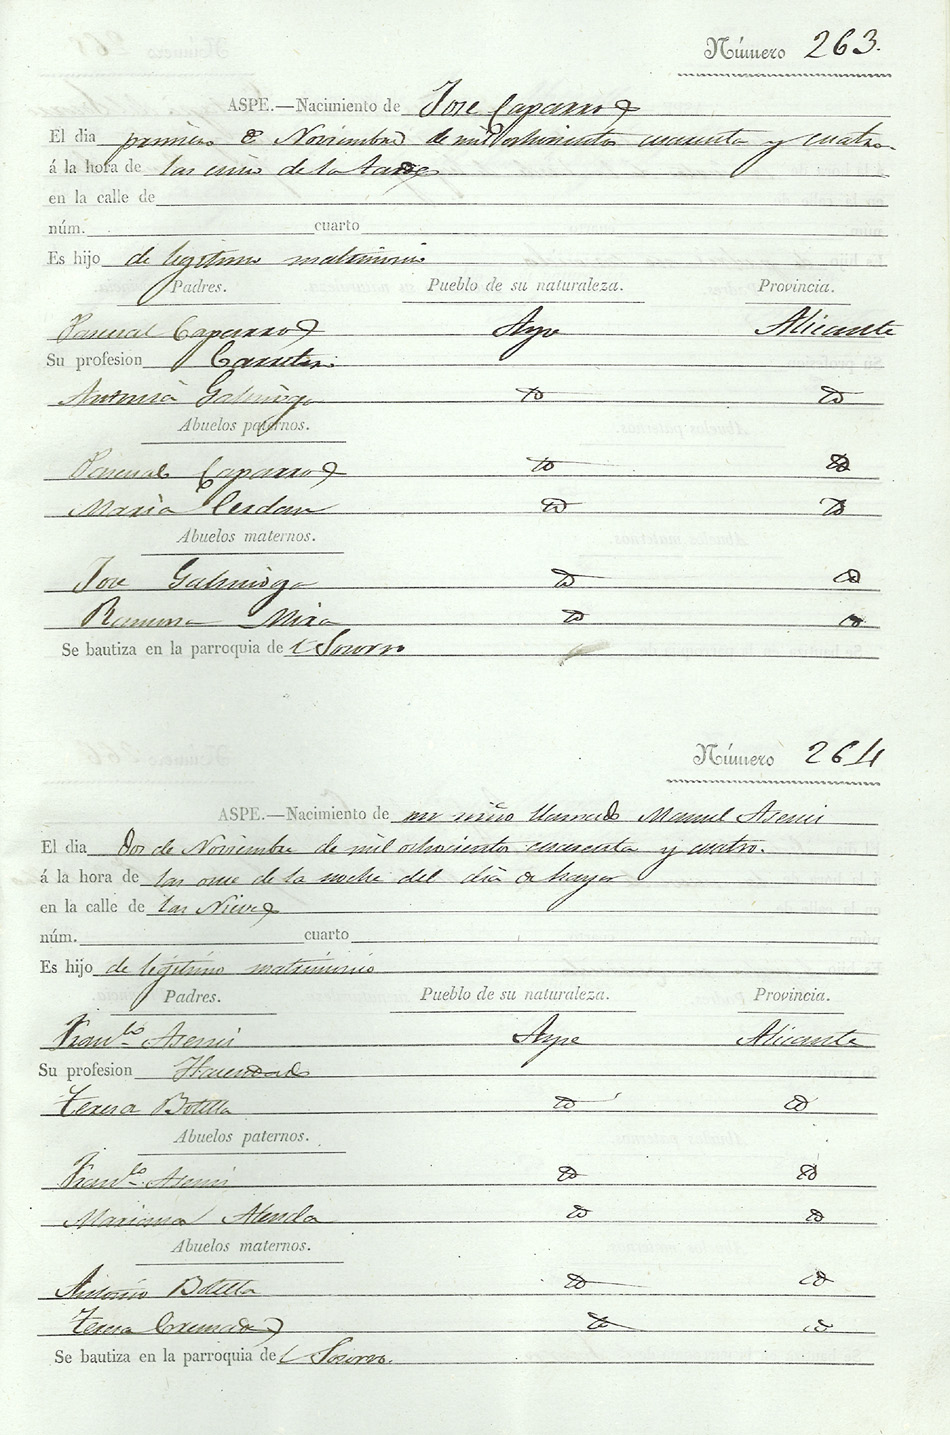 Número 263.
ASPE.—Nacimiento de Jose Caparros
El dia primero de Noviembre de mil ochocientos cuarenta y cuatro.
á la hora de las cinco de la tarde
en la calle de
núm. cuarto
Es hijo de legitimo matrimonio
Padres. Pueblo de su naturaleza. Provincia.
Pascual Caparros Aspe Alicante
Su profesion Carretero
Antonia Galiniega id id
Abuelos paternos.
Pascual Caparros id id
Maria Cerdan id id
Abuelos maternos.
Jose id id
Ramona Mira id id
Se bautiza en la parroquia de l Socorro
Número 264
ASPE.—Nacimiento de un niño llamado Manuel Asensi
El dia dos de Noviembre de mil ochocientos cuarenta y cuatro.
á la hora de las once de la noche del dia de hayer
en la calle de las Nieves
núm. cuarto
Es hijo de legitimo matrimonio
Padres. Pueblo de su naturaleza. Provincia.
Franco. Asensi Aspe Alicante
Su profesion Hacendado
Teresa Botella id id
Abuelos paternos.
Franco. Asensi id id
Mariana Alenda id id
Abuelos maternos.
Antonio Botella id id
Teresa Cremades id id
Se bautiza en la parroquia de l Socorro.